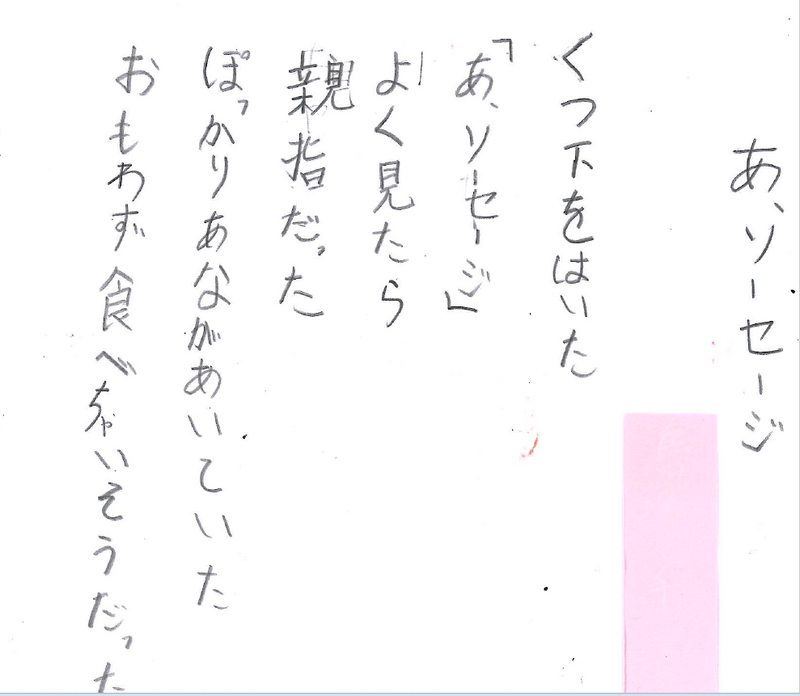 あ、ソーセージ
くつ下をはいた
「あ、ソーセージ」
よく見たら
親指だった
ぽっかりあながあいていた
おもわず食べちゃいそうだった